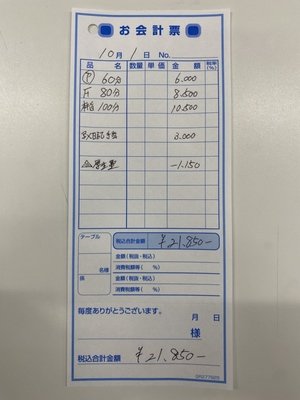 お会計票
10月 1日 No.
品 名 数量 単価 金 額 税率(%)
60分 6.000
80分 8.500
100分 10.500
3.000
-1.150
テーブル
名様
係
税込合計金額 ¥21.850-
金額(税抜・税込)
消費税額等( %)
金額(税抜・税込)
消費税額等( %)
毎度ありがとうございます。
月 日
様
税込合計金額 ¥21.850-